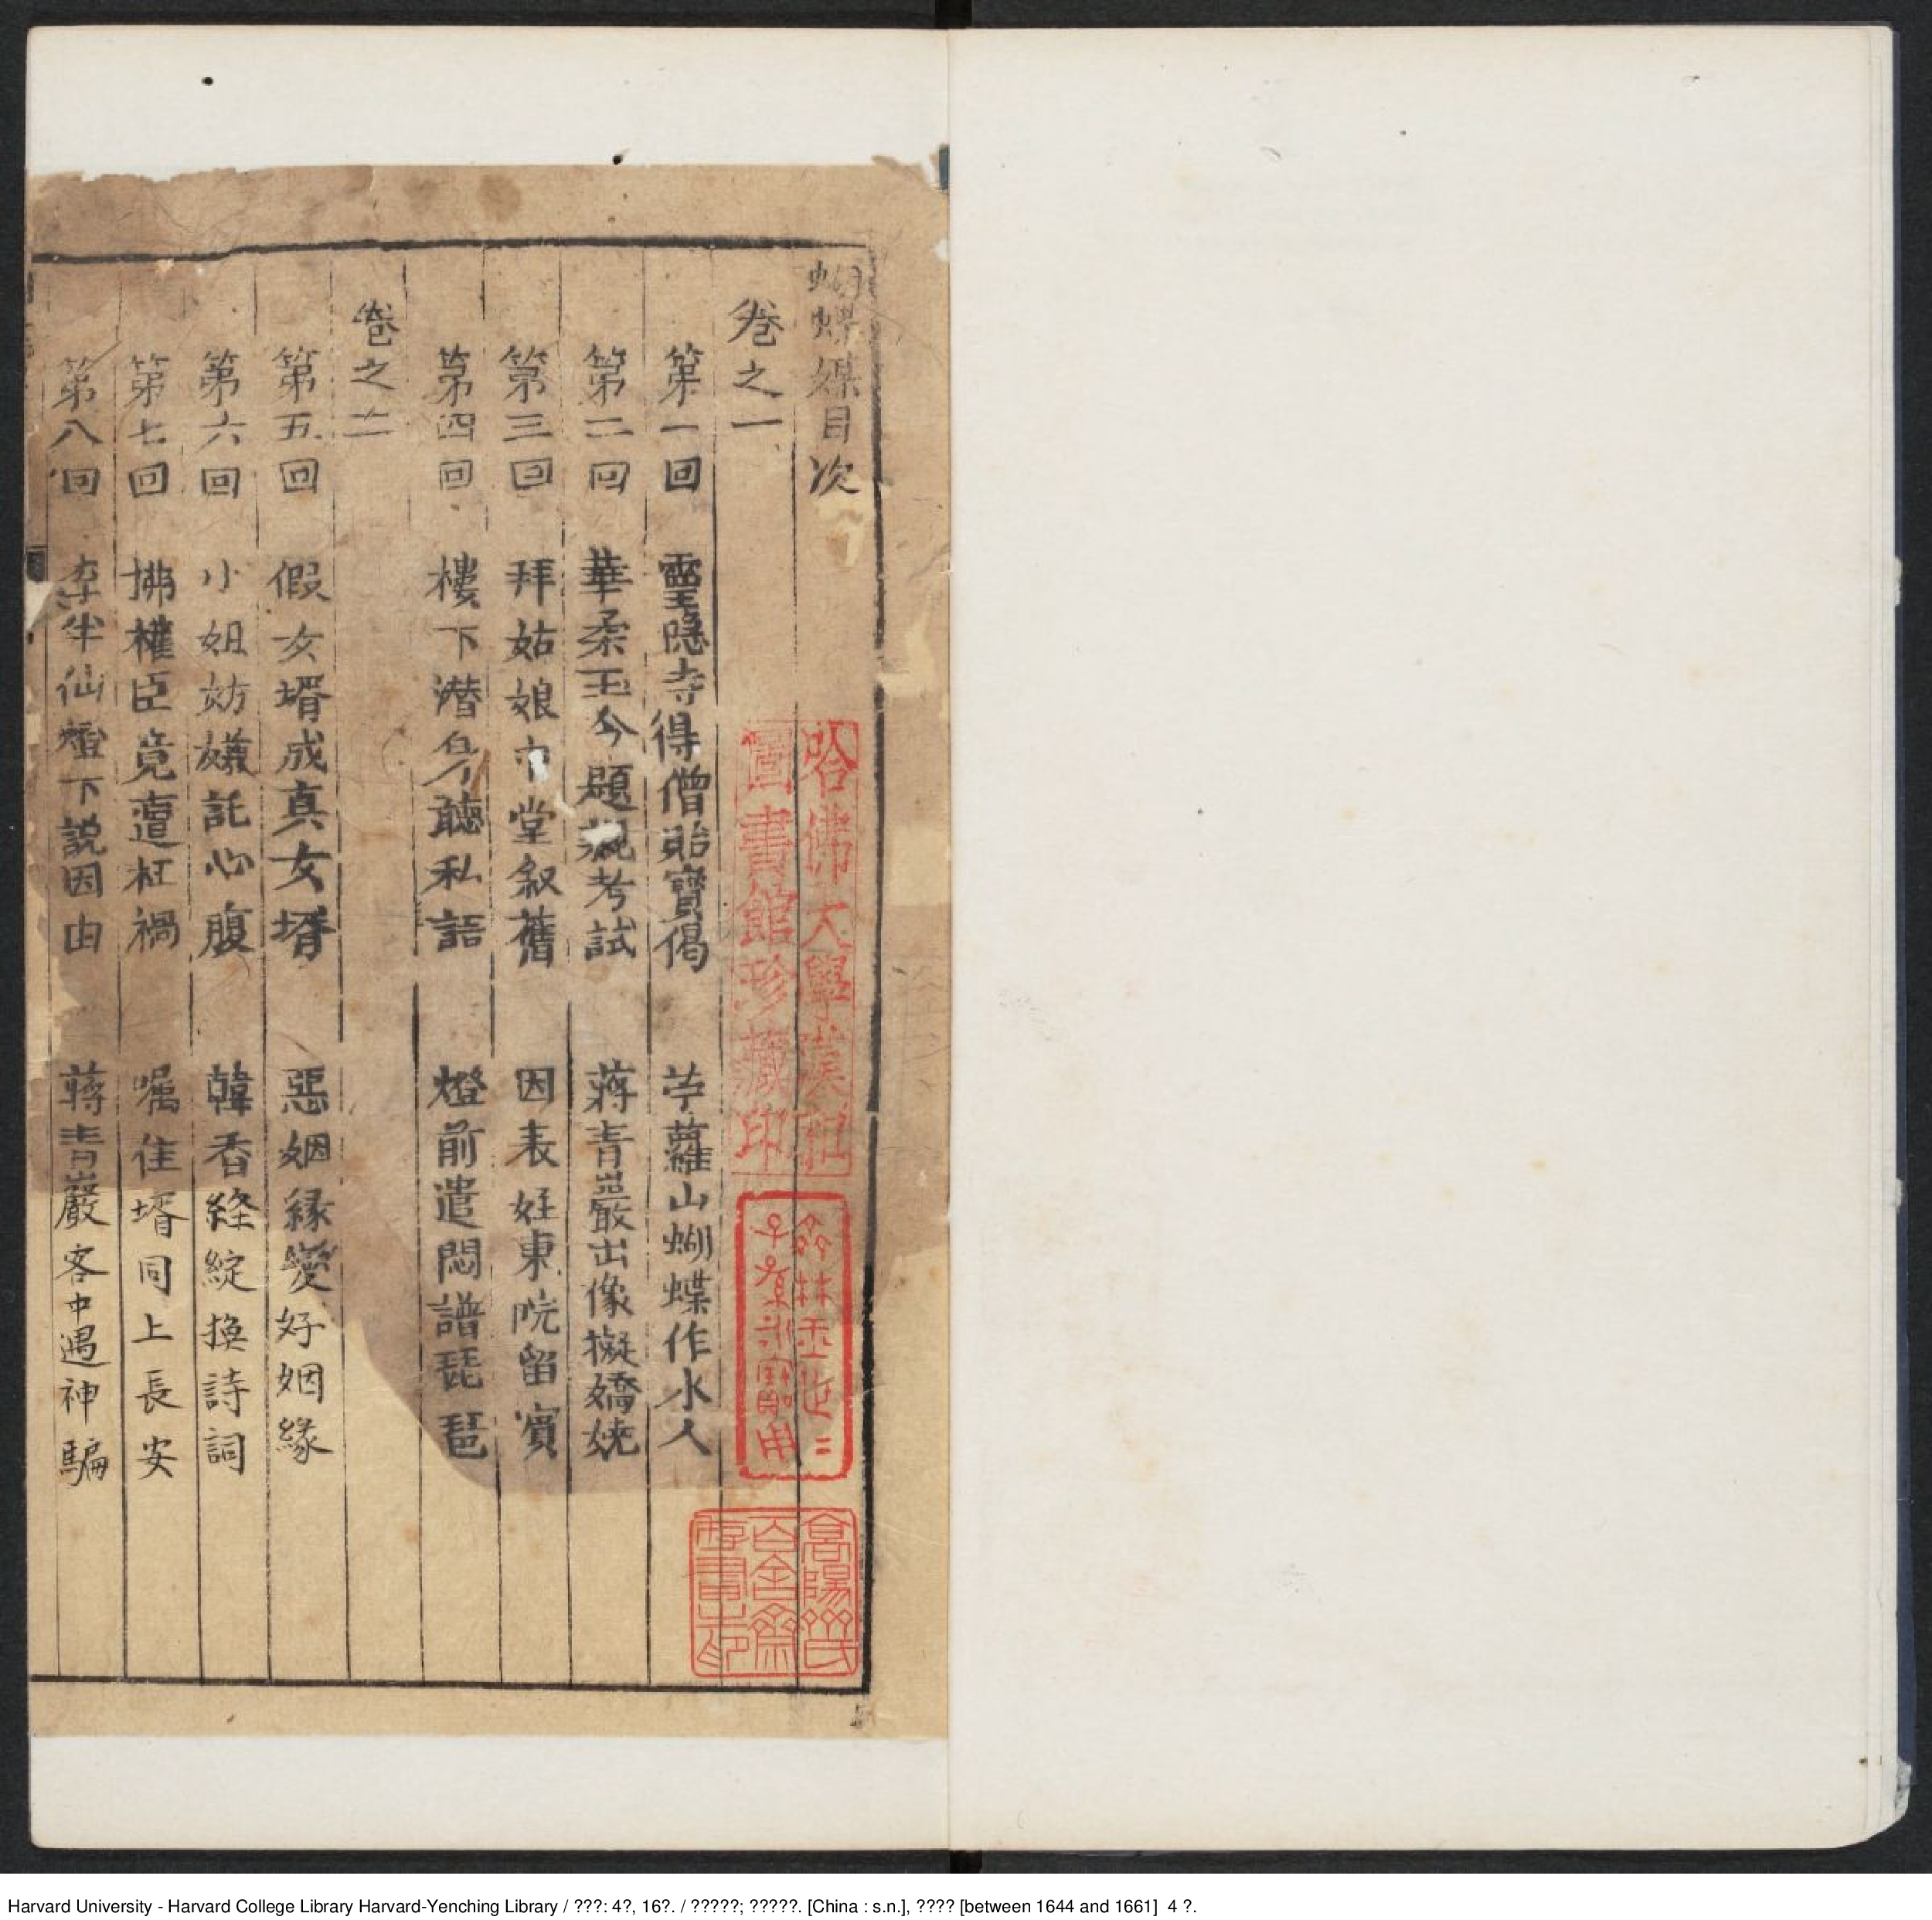 蝴蝶媒目次
卷之一
第一回 靈隱寺得僧貽寶偈 苧蘿山蝴蝶作氷人
第二回 華柔玉今題觀考試 蔣青巖出像擬嬌嬈
第三回 拜姑娘中堂叙舊 因表姪東院留賓
第四回 樓下潛身聽私語 燈前遣悶譜琵琶
卷之二
第五回 假女壻成真女壻 惡姻緣變好姻緣
第六回 小姐妨嫌託心腹 韓香絳綻換詩詞
第七回 拂權臣竟遭枉禍 嘱佳壻同上長安
第八回 李半仙燈下説因由 蔣青巖客中遇神騙
哈佛大學漢和
圖書館珍藏印
子孫永寶用
高陽
百舍齋
存書
Harvard University - Harvard College Library Harvard-Yenching Library / ???: 4?, 16?. / ?????; ?????. [China : s.n.], ???? [between 1644 and 1661] 4 ?.